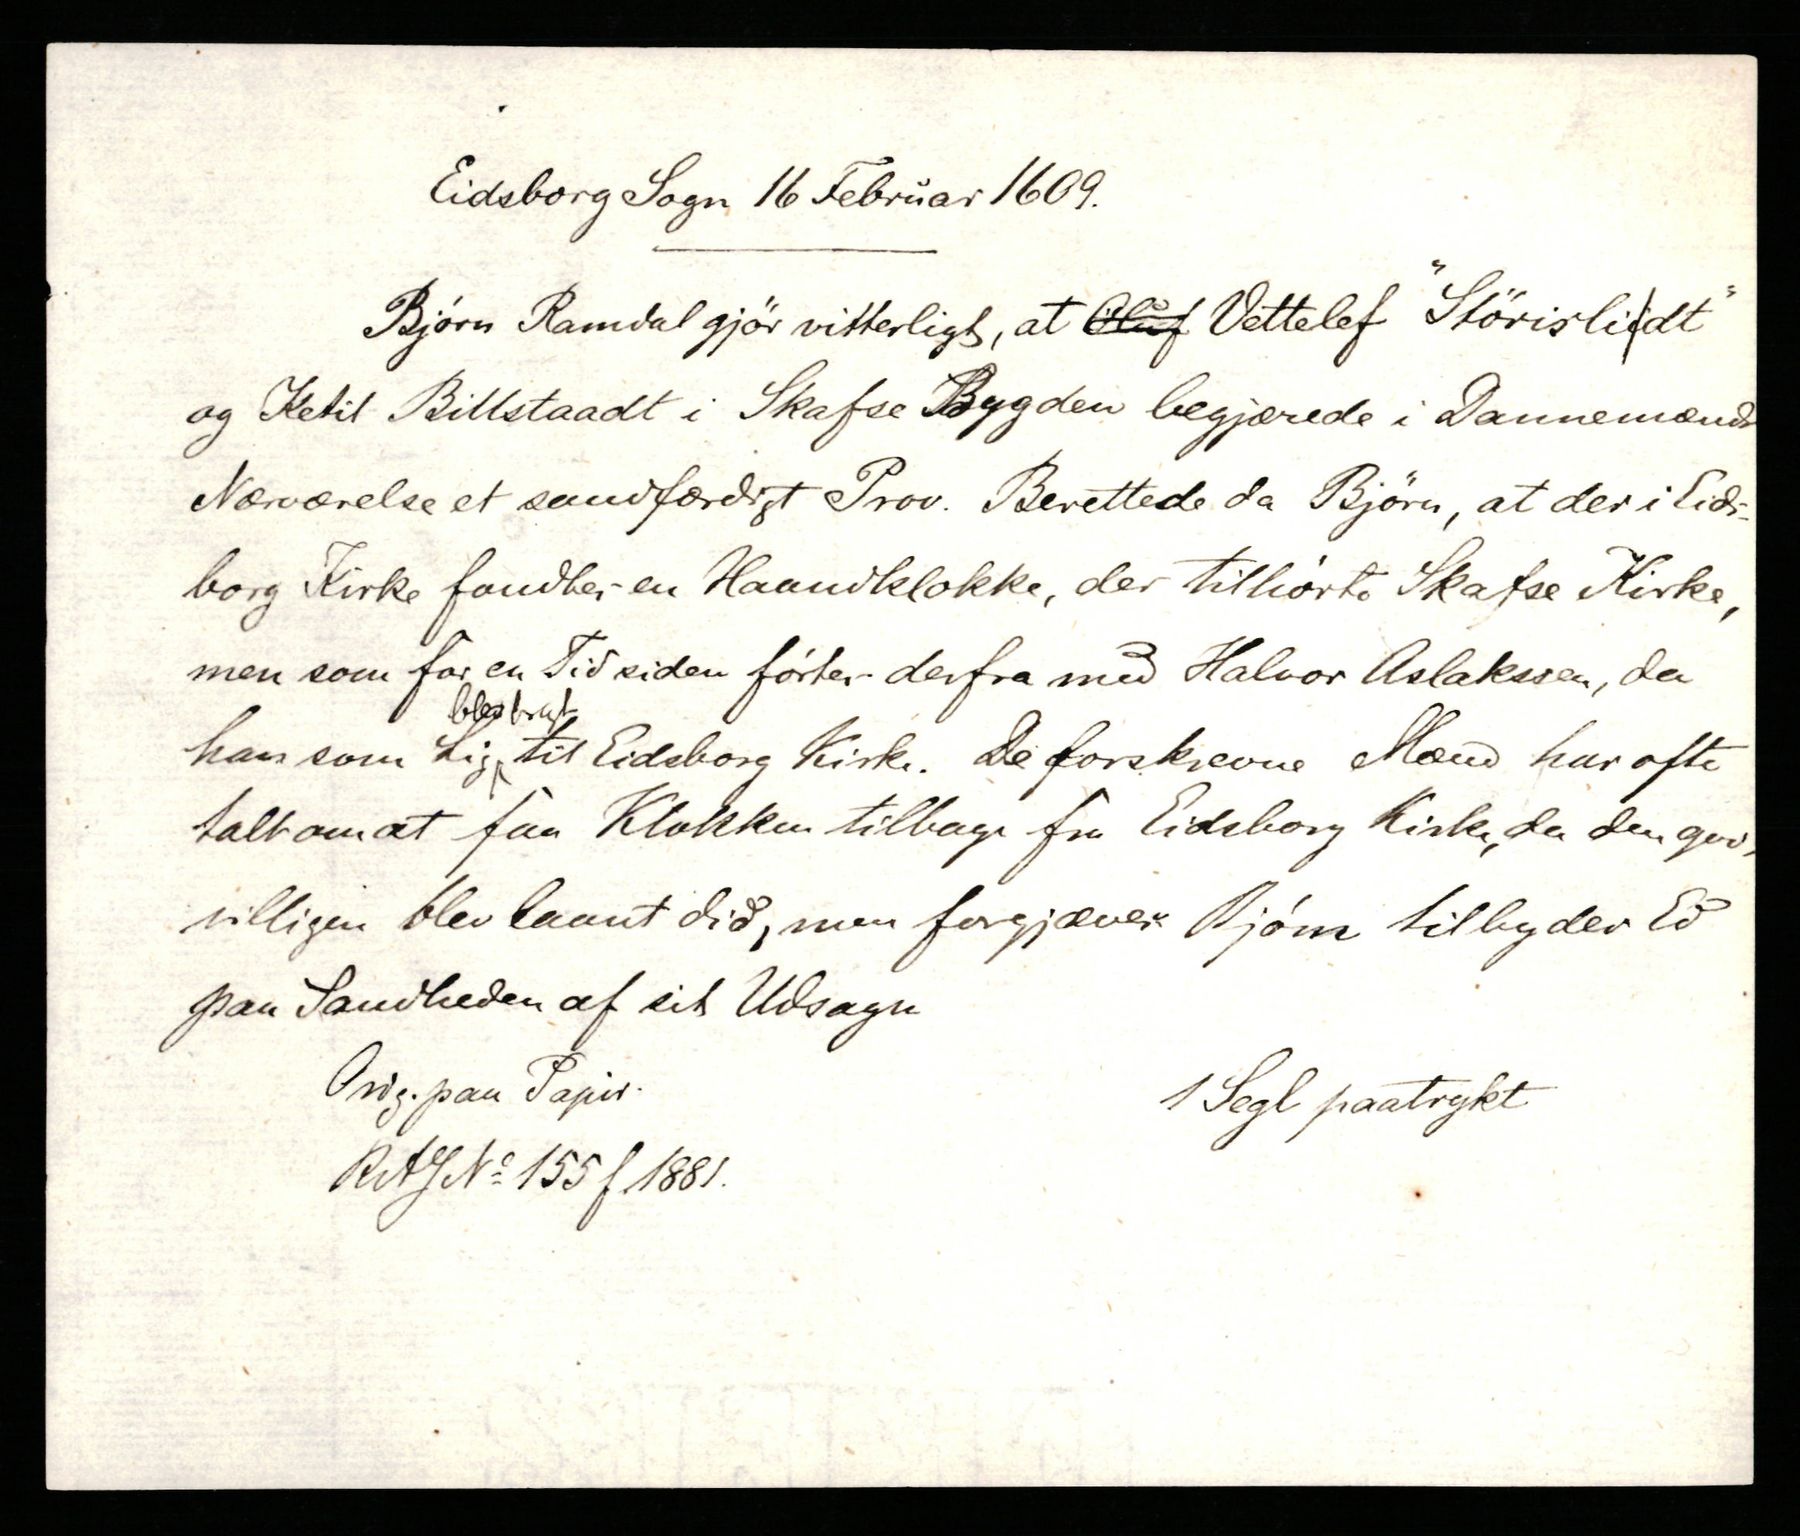 Eidsborg Sogn 16 Februar 1609.
Bjørn Ramdal gjör vitterligt, at Oluf Vettelef "Störislidt"
og Ketil Billstaadt i Skafse Bygden begjærede i Dannemænds
Nærværelse et sandfærdigt Prov. Berettede da Björn, at der i Eids-
borg Kirke fandtes en Haandklokke, der tilhörte Skafse Kirke,
men som for en Tid siden förtes derfra med Halvor Aslakssen, da
blev bragt
han som Lig til Eidsborg Kirke. De forskrevne Mænd har ofte
talt om at faa Klokken tilbage fra Eidsborg Kirke, da den god-
villigen blev laant did, men forgjæves. Björn tilbyder Ed
paa Sandheden af sit Udsagn
Orig. paa Papir.
1 Segl paatrykt
RAJ No 155 f 1881.